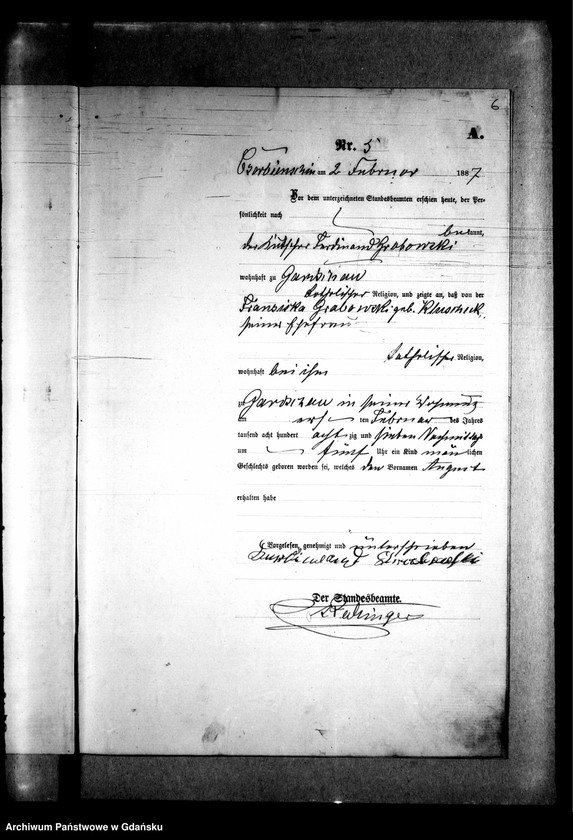 6
A.
Nr. 5
Czerbienschin am 2 Februar 1887
Vor dem unterzeichneten Standesbeamten erschien heute, der Per-
sönlichkeit nach
bekannt,
der Kutscher Ferdinand Grabowski
wohnhaft zu Gardschau
katholischer Religion, und zeigte an, daß von der
Franziska Grabowski geb.
seiner Ehefrau
katholischer Religion,
wohnhaft bei ihm
zu Gardschau in seiner Wohnung
am ersten Februar des Jahres
tausend acht hundert achtzig und sieben Nachmittags
um fünf Uhr ein Kind männlichen
Geschlechts geboren worden sei, welches den Vornamen August
erhalten habe
Vorgelesen, genehmigt und unterschrieben
Ferdinand Grabowski
Der Standesbeamte.
Archiwum Państwowe w Gdańsku